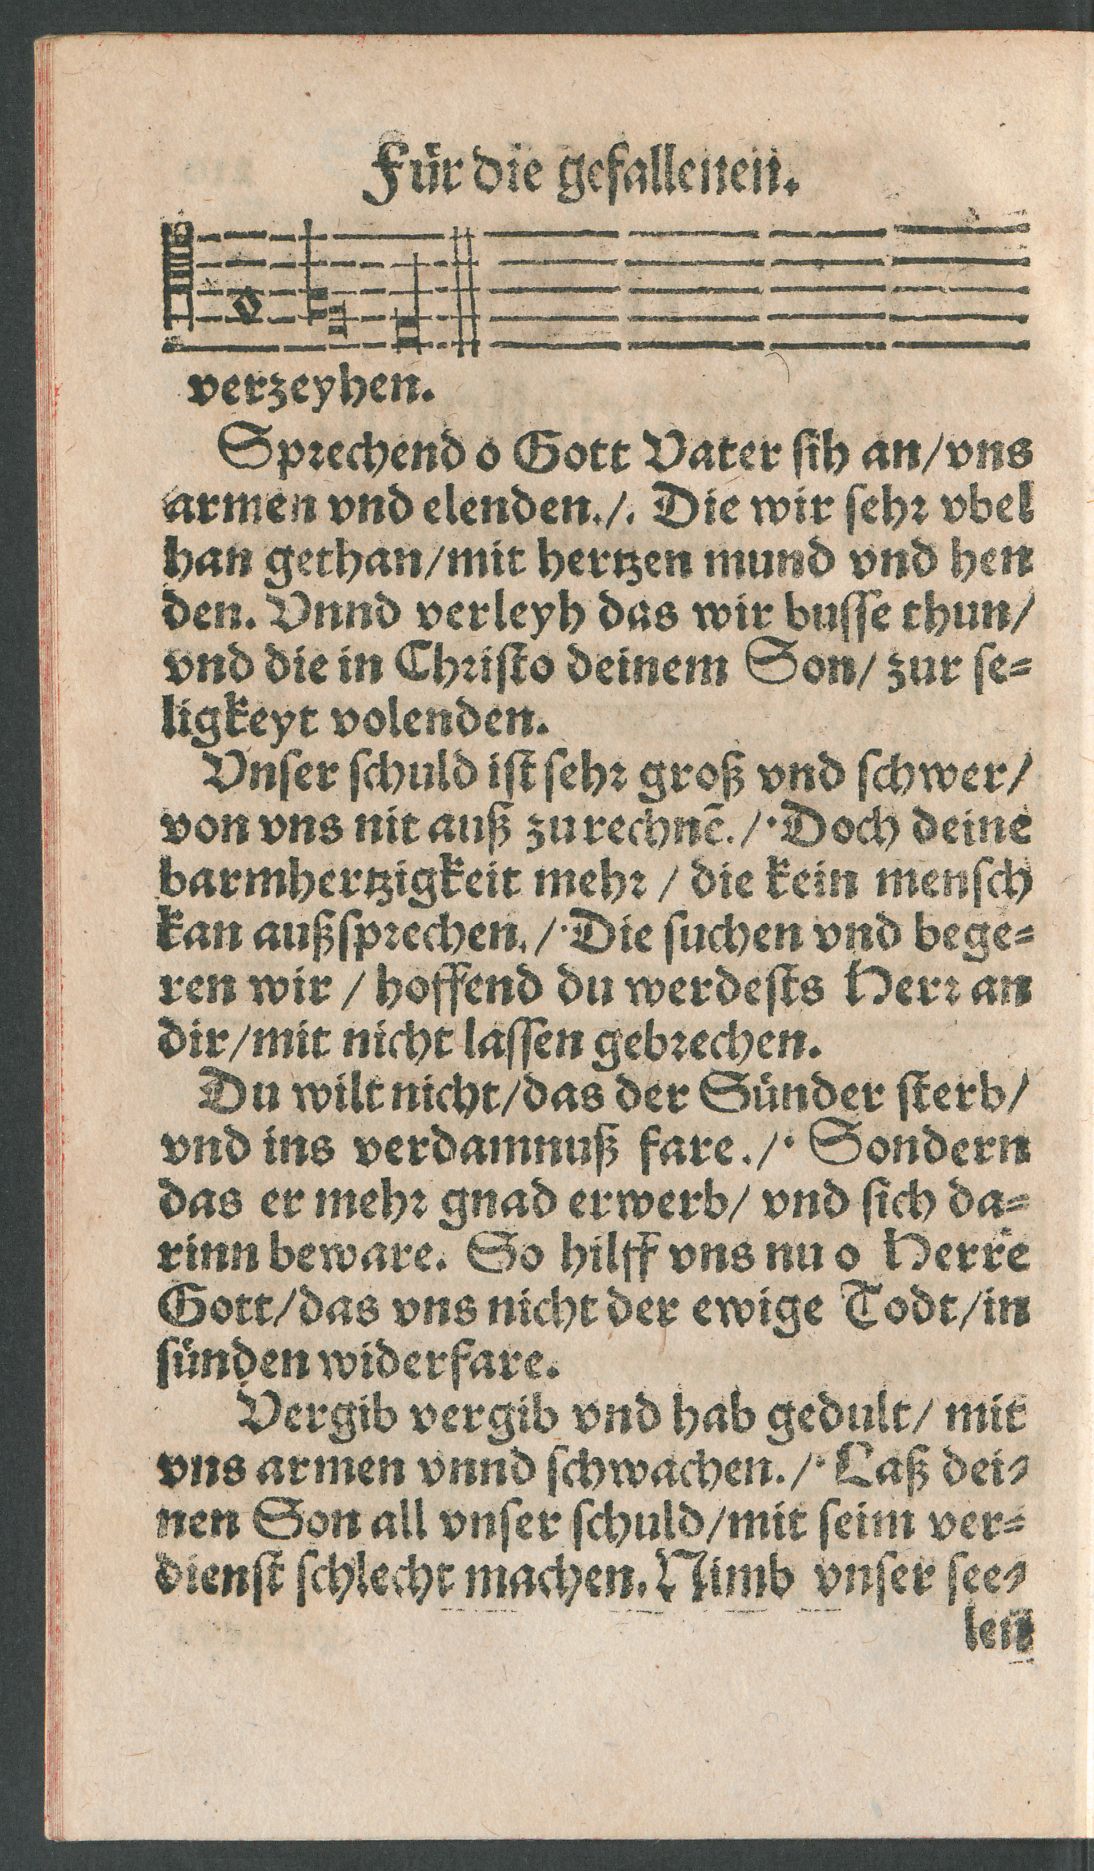 Für die gefallenen.
verzeyhen.
Sprechend o Gott Vater sih an/vns
armen vnd elenden./. Die wir sehr vbel
han gethan/mit hertzen mund vnd hen
den. Vnnd verleyh das wir busse thun/
vnd die in Christo deinem Son/ zur se=
ligkeyt volenden.
Vnser schuld ist sehr groß vnd schwer/
von vns nit auß zu rechnē./· Doch deine
barmhertzigkeit mehr / die kein mensch
kan außsprechen./· Die suchen vnd bege=
ren wir / hoffend du werdests Herr an
dir/mit nicht lassen gebrechen.
Du wilt nicht/das der Sünder sterb/
vnd ins verdamnuß fare./· Sondern
das er mehr gnad erwerb/ vnd sich da=
rinn beware. So hilff vns nu o Herre
Gott/das vns nicht der ewige Todt/in
sünden widerfare.
Vergib vergib vnd hab gedult/ mit
vns armen vnnd schwachen./· Laß dei=
nen Son all vnser schuld/mit seim ver=
dienst schlecht machen. Nimb vnser see=
len